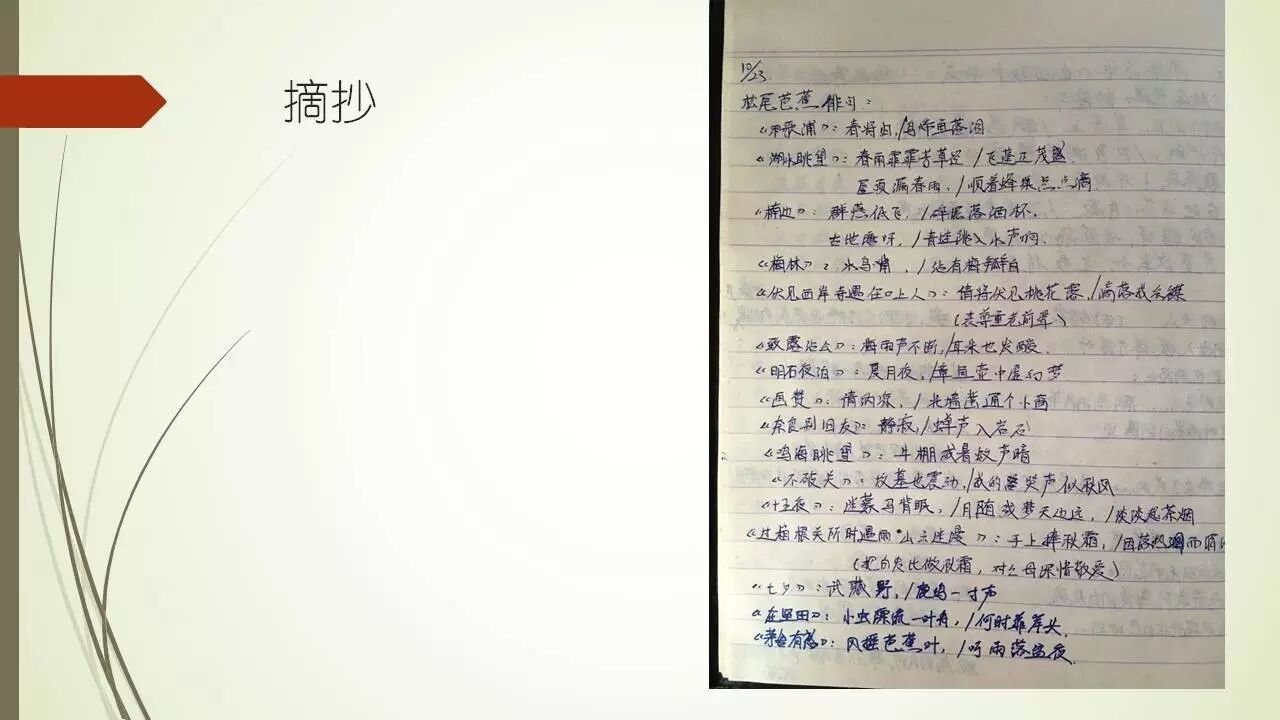 摘抄
10/23
松尾芭蕉俳句：
《和歌浦》：春将归，/鸟啼鱼落泪
《湖水眺望》：春雨霏霏芳草径，/飞蓬正茂盛
屋顶漏春雨，/顺着蜂巢点点滴
《楠边》：群燕低飞，/碎泥落酒杯.
古池塘呀，/青蛙跳入水声响.
《梅林》：水鸟嘴，/沾有梅瓣白
《伏见西岸寺遇任口上人》：倩将伏见桃花露，/滴落我衣
（表尊重老前辈）
：梅雨声不断，/耳朵也发酸.
《明石夜泊》：夏月夜，/章鱼壶中虚幻梦
《画赞》：请纳凉，/北墙凿通个小窗
《奈良别旧友》：静寂，/蝉声入岩石
《鸣海眺望》：牛棚成暑蚊声暗
《不破关》：坟墓也震动，/我的哭声似秋风
《十五夜》：迷蒙马背眠，/月随残梦天边远，/淡淡起茶烟
《过箱根关所时遇雨，山云迷漫》：手上捧秋霜，/因落热泪而消
（把白发比做秋霜，对亡母深情敬爱）
《七夕》：武藏野，/鹿鸣一寸声
《在坚田》：小虫漂流一叶舟，/何时靠岸头.
：风摇芭蕉叶，/听雨落盆夜.